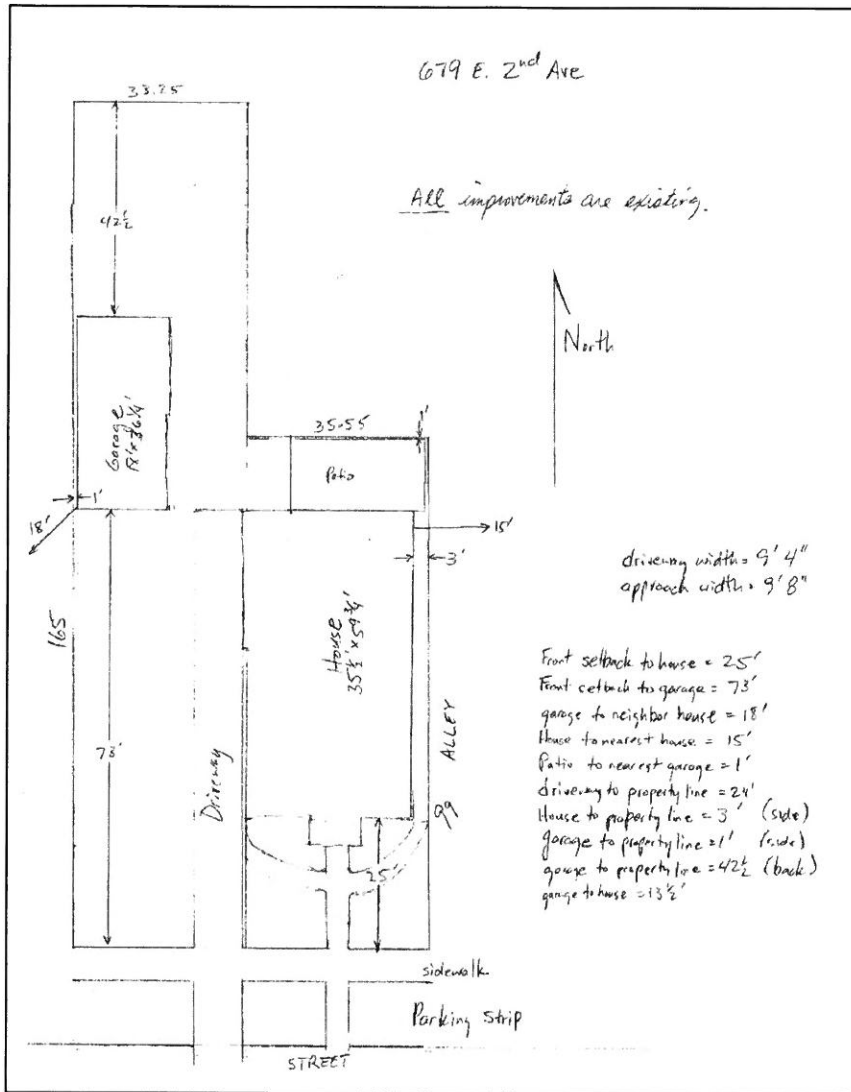 679 E. 2nd Ave
33.25
All improvements are existing.
42½
North
35.55
1'
Patio
Garage
1'
18'
15'
3'
driveway width = 9' 4"
approach width = 9' 8"
165
House
35½' x 59¾'
73'
Driveway
ALLEY
25'
Front setback to house = 25'
Front setback to garage = 73'
garage to neighbor house = 18'
House to nearest house = 15'
Patio to nearest garage = 1'
driveway to property line = 24'
House to property line = 3' (side)
garage to property line = 1' (side)
garage to property line = 42½ (back)
garage to house = 13½'
sidewalk
Parking Strip
STREET